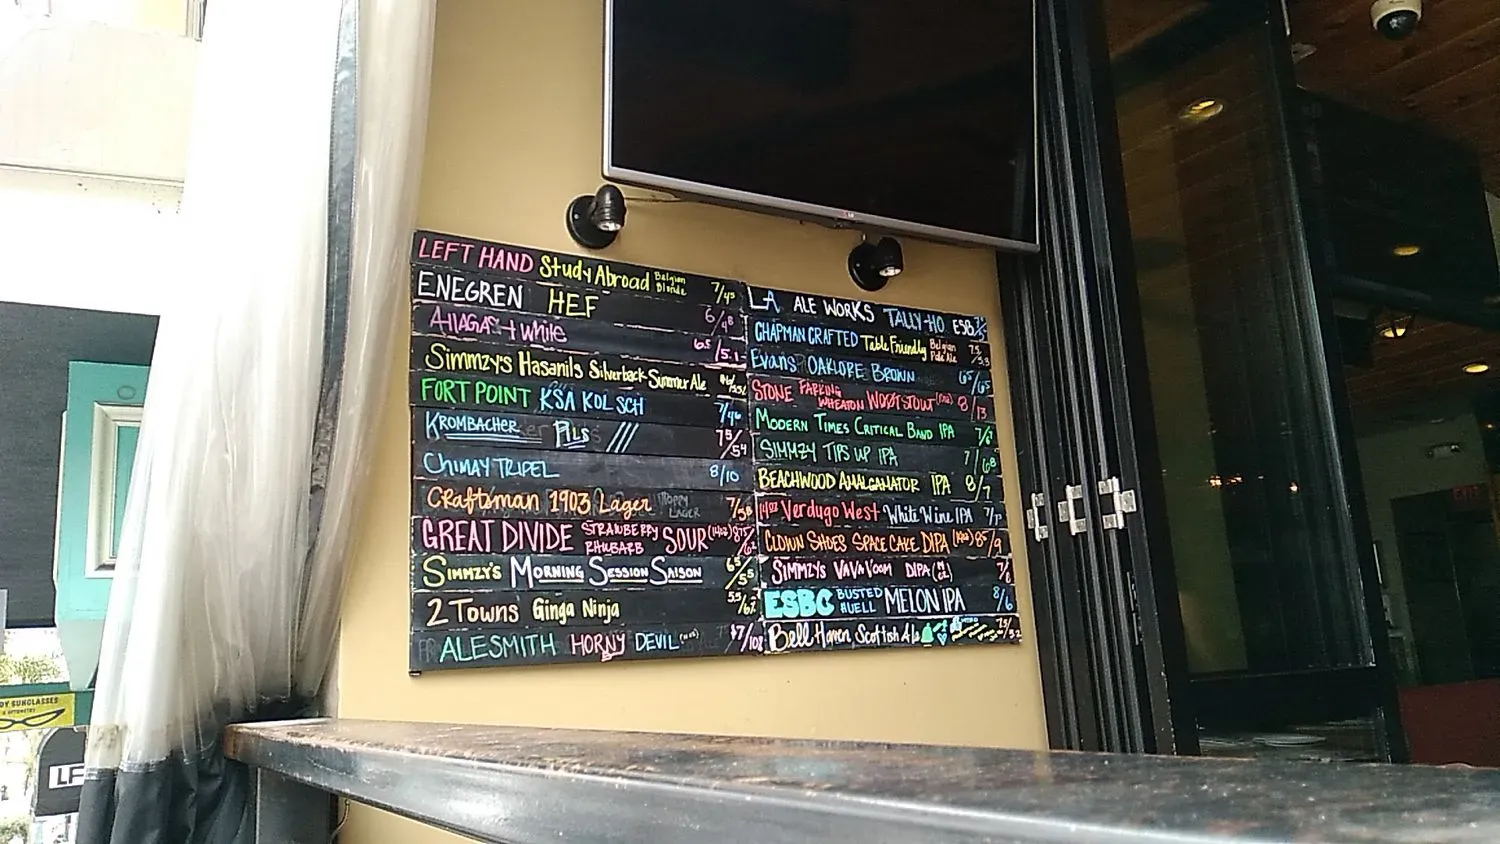 LEFT HAND Study Abroad Belgian Blonde 7/4.5
ENEGREN HEF 6/4.8
Allagash White 6.5/5.1
Simmzy's Hasanils Silverback Summer Ale
FORT POINT KSA KOLSCH 7/4.6
KROMBACHER PILS 7.5/5.4
CHIMAY TRIPEL 8/10
Craftsman 1903 Lager 7/5.8
GREAT DIVIDE STRAWBERRY RHUBARB SOUR (14oz)
SIMMZY'S MORNING SESSION SAISON 6.5/5.5
2 Towns Ginga Ninja
ALESMITH HORNY DEVIL
LA ALE WORKS TALLY-HO ESB
CHAPMAN CRAFTED Table Friendly Belgian Pale Ale
Evans OAKLORE BROWN 6.5/6.5
STONE FARKING WHEATON W00TSTOUT 8/13
MODERN TIMES CRITICAL BAND IPA
SIMMZY TIPS UP IPA 7/6.8
BEACHWOOD AMALGAMATOR IPA 8/7
14oz Verdugo West White Wine IPA
CLOWN SHOES SPACE CAKE DIPA 8.5/9
SIMMZYS VA VA VOOM DIPA
ESBC BUSTED HUELL MELON IPA 8/6
Bell Haven Scottish Ale
SUNGLASSES
LF
EXIT